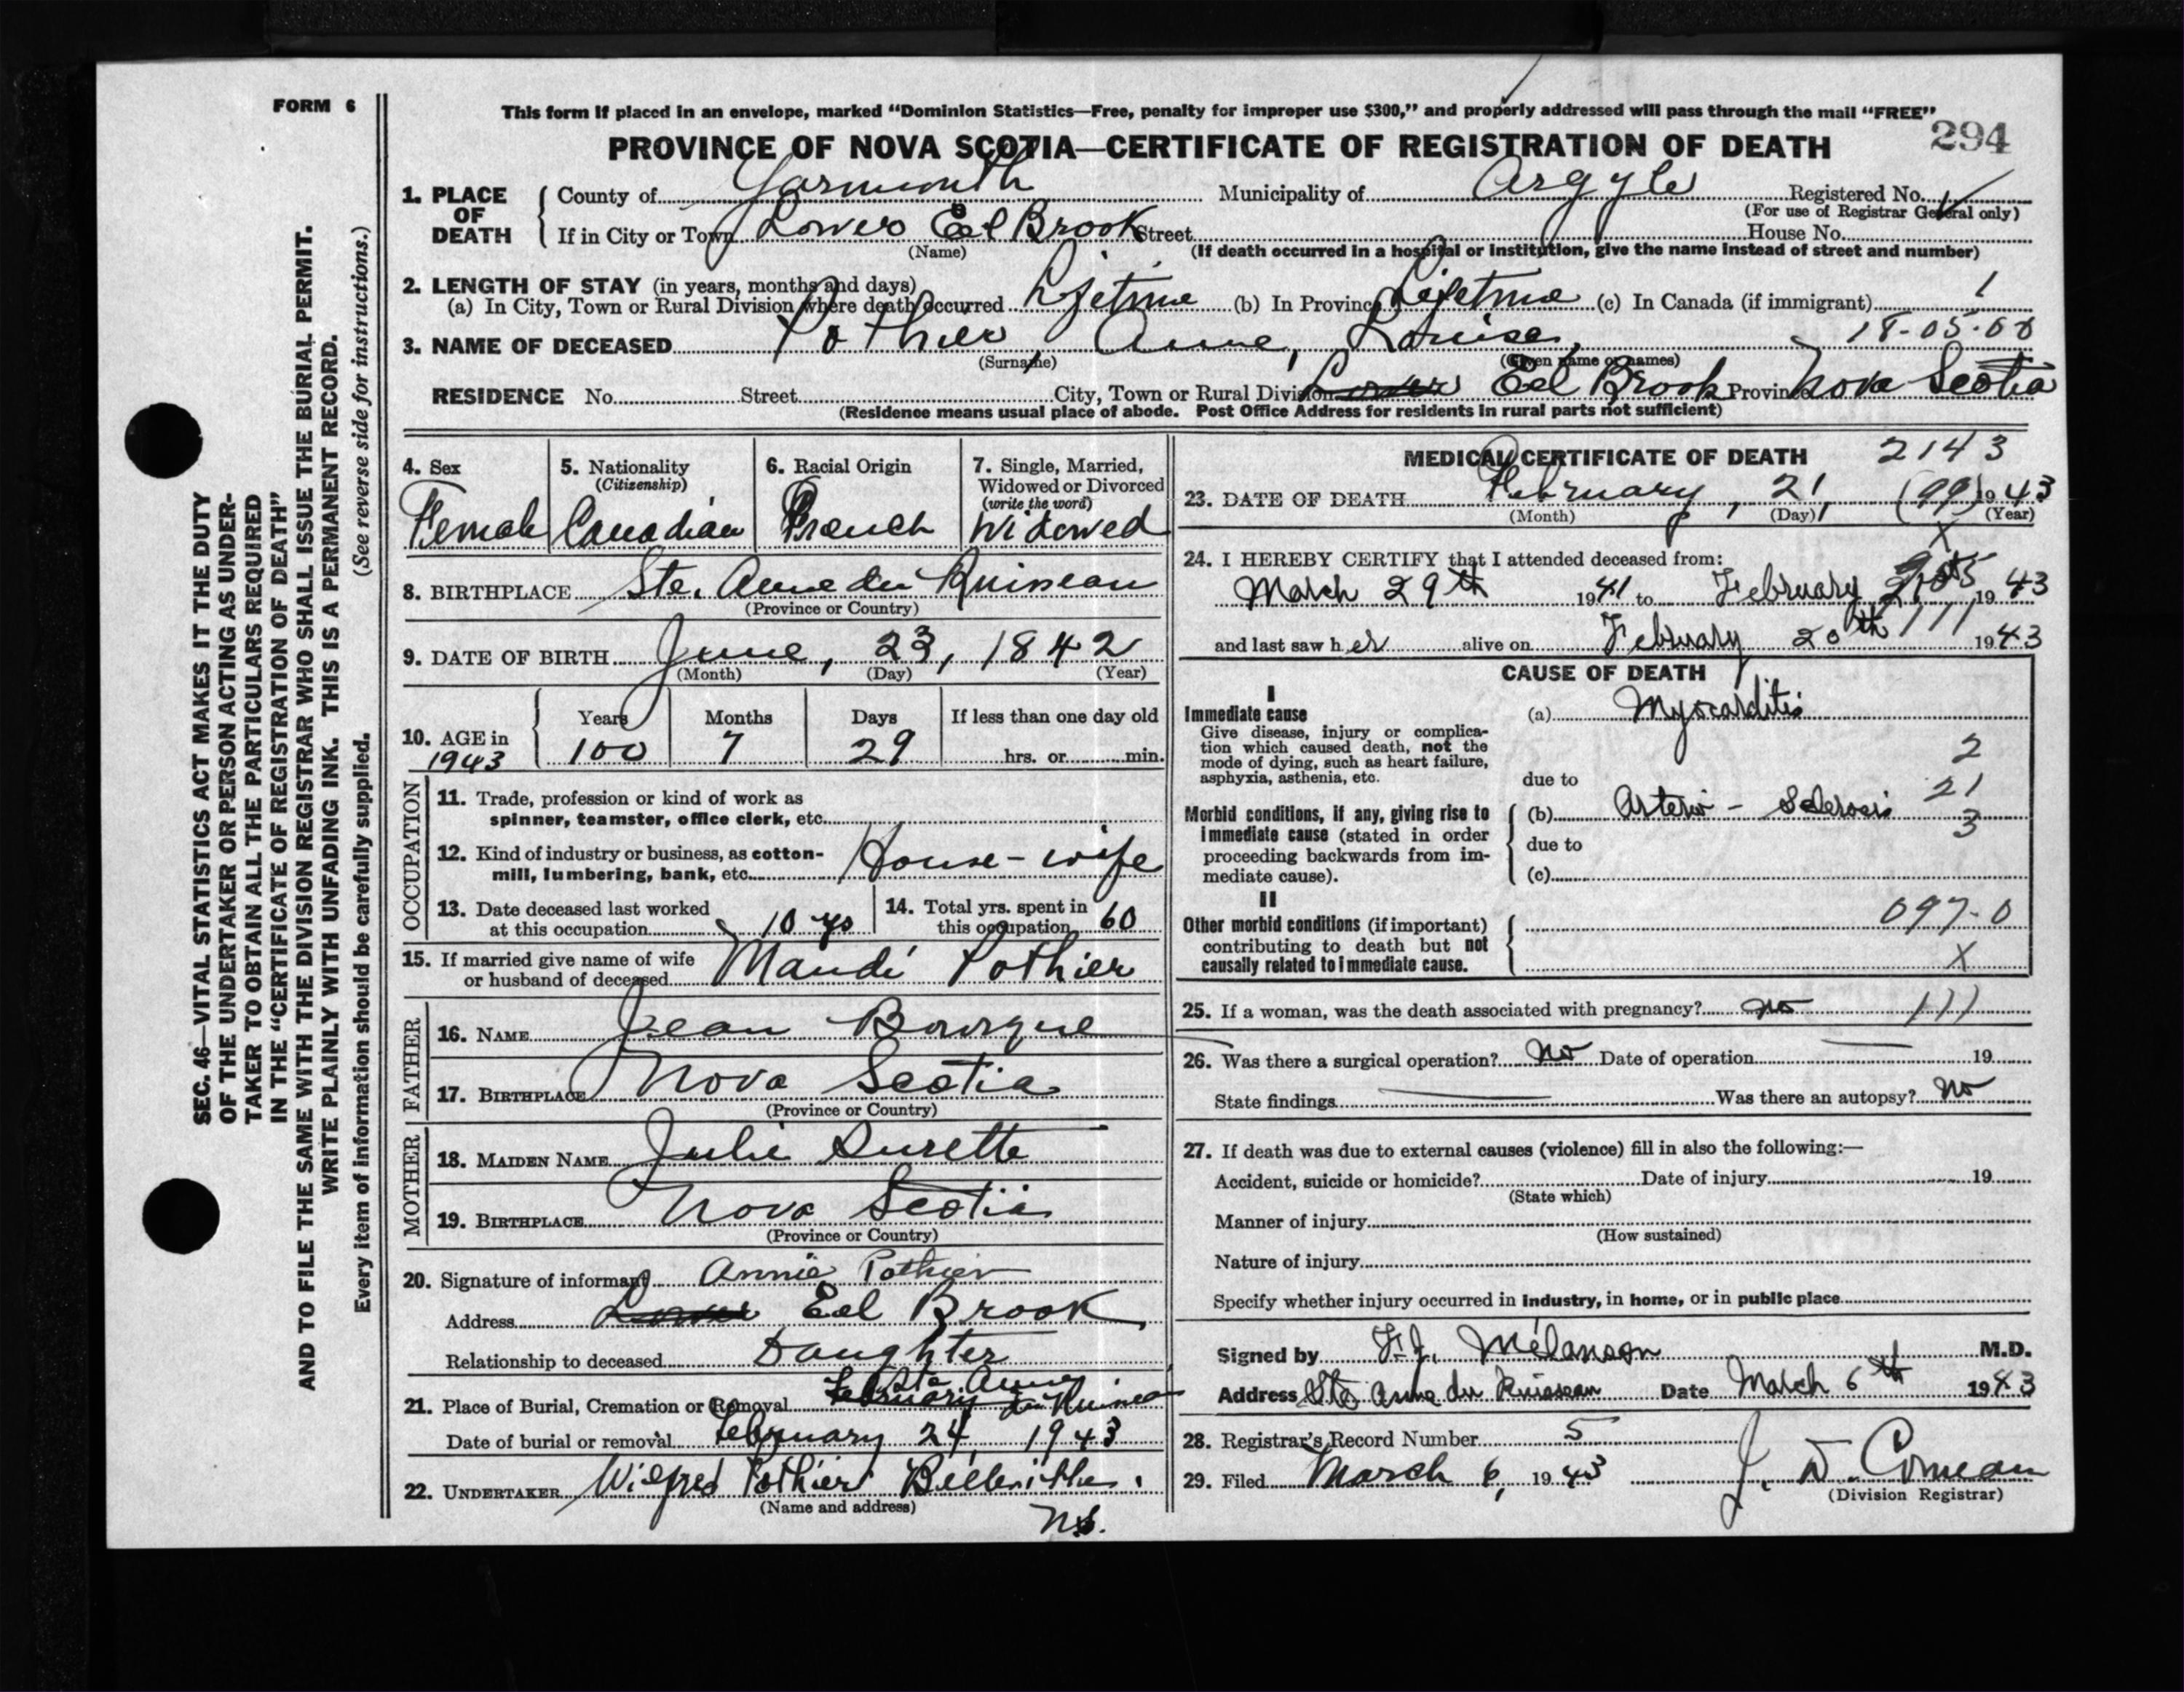 FORM 6
This form if placed in an envelope, marked “Dominion Statistics—Free, penalty for improper use $300,” and properly addressed will pass through the mail “FREE”
PROVINCE OF NOVA SCOTIA—CERTIFICATE OF REGISTRATION OF DEATH 294
1. PLACE OF DEATH County of Yarmouth Municipality of Argyle Registered No.
(For use of Registrar General only)
If in City or Town Lower Eel Brook Street House No.
(Name) (If death occurred in a hospital or institution, give the name instead of street and number)
2. LENGTH OF STAY (in years, months and days)
(a) In City, Town or Rural Division where death occurred Lifetime (b) In Province Lifetime (c) In Canada (if immigrant) 1
3. NAME OF DECEASED Pothier, Anne, Louise, 18-05-00
(Surname) (Given name or names)
RESIDENCE No. Street City, Town or Rural Division Lower Eel Brook Province Nova Scotia
(Residence means usual place of abode. Post Office Address for residents in rural parts not sufficient)
4. Sex
Female
5. Nationality
(Citizenship)
Canadian
6. Racial Origin
French
7. Single, Married,
Widowed or Divorced
(write the word)
Widowed
8. BIRTHPLACE Ste. Anne du Ruisseau
(Province or Country)
9. DATE OF BIRTH June, 23, 1842
(Month) (Day) (Year)
10. AGE in 1943
Years Months Days If less than one day old
100 7 29 hrs. or min.
OCCUPATION
11. Trade, profession or kind of work as
spinner, teamster, office clerk, etc.
12. Kind of industry or business, as cotton-
mill, lumbering, bank, etc. House-wife
13. Date deceased last worked
at this occupation 10 yrs
14. Total yrs. spent in
this occupation 60
15. If married give name of wife
or husband of deceased Mandé Pothier
FATHER
16. NAME Jean Bourque
17. BIRTHPLACE Nova Scotia
(Province or Country)
MOTHER
18. MAIDEN NAME Julie Surette
19. BIRTHPLACE Nova Scotia
(Province or Country)
20. Signature of informant Annie Pothier
Address Lower Eel Brook
Relationship to deceased Daughter
21. Place of Burial, Cremation or Removal February Ste. Anne du Ruisseau
Date of burial or removal February 24, 1943
22. UNDERTAKER Wilfred Pothier
(Name and address)
N.S.
MEDICAL CERTIFICATE OF DEATH 2143
23. DATE OF DEATH February, 21, (99) 1943
(Month) (Day) (Year)
X
24. I HEREBY CERTIFY that I attended deceased from:
March 29th 1941 to February 1943
and last saw her alive on February 20th 111 1943
CAUSE OF DEATH
I
Immediate cause (a) Myocarditis
Give disease, injury or complica-
tion which caused death, not the
mode of dying, such as heart failure,
asphyxia, asthenia, etc.
2
due to
21
Morbid conditions, if any, giving rise to
immediate cause (stated in order
proceeding backwards from im-
mediate cause).
(b) Arterio-Sclerosis
3
due to
(c)
II
Other morbid conditions (if important)
contributing to death but not
causally related to immediate cause.
097-0
X
25. If a woman, was the death associated with pregnancy? no 111
26. Was there a surgical operation? No Date of operation 19
State findings Was there an autopsy? No
27. If death was due to external causes (violence) fill in also the following:—
Accident, suicide or homicide? Date of injury 19
(State which)
Manner of injury
(How sustained)
Nature of injury
Specify whether injury occurred in industry, in home, or in public place
Signed by F.J. Mélanson M.D.
Address Ste Anne du Ruisseau Date March 6th 1943
28. Registrar's Record Number 5
29. Filed March 6, 1943 J. W. Comeau
(Division Registrar)
SEC. 46—VITAL STATISTICS ACT MAKES IT THE DUTY
OF THE UNDERTAKER OR PERSON ACTING AS UNDER-
TAKER TO OBTAIN ALL THE PARTICULARS REQUIRED
IN THE “CERTIFICATE OF REGISTRATION OF DEATH”
AND TO FILE THE SAME WITH THE DIVISION REGISTRAR WHO SHALL ISSUE THE BURIAL PERMIT.
WRITE PLAINLY WITH UNFADING INK. THIS IS A PERMANENT RECORD.
Every item of information should be carefully supplied. (See reverse side for instructions.)